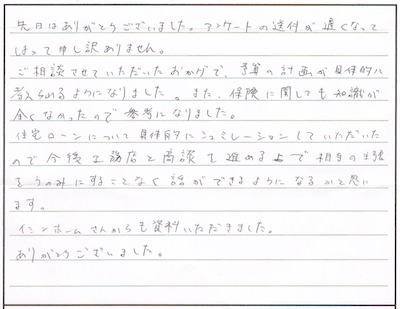 先日はありがとうございました。アンケートの送付が遅くなって
しまって申し訳ありません。
ご相談させていただいたおかげで、予算の計画が具体的に
考えられるようになりました。また、保険に関しても知識が
全くなかったので参考になりました。
住宅ローンについて具体的にシュミレーションしていただいた
ので今後工務店と商談を進める上で相手の主張
をうのみにすることなく話ができるようになるかと思い
ます。
イシンホームさんからも資料いただきました。
ありがとうございました。